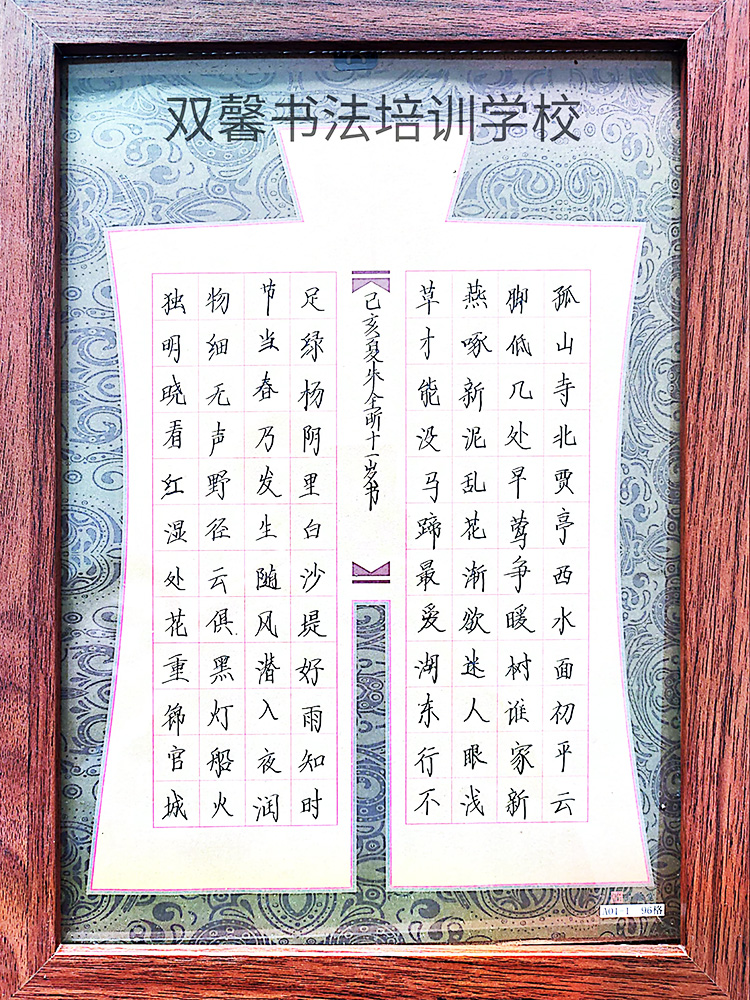 双馨书法培训学校
孤山寺北贾亭西水面初平云
脚低几处早莺争暖树谁家新
燕啄新泥乱花渐欲迷人眼浅
草才能没马蹄最爱湖东行不
己亥夏朱全昕十一岁书
足绿杨阴里白沙堤好雨知时
节当春乃发生随风潜入夜润
物细无声野径云俱黑灯船火
独明晓看红湿处花重锦官城
A01-1 96格